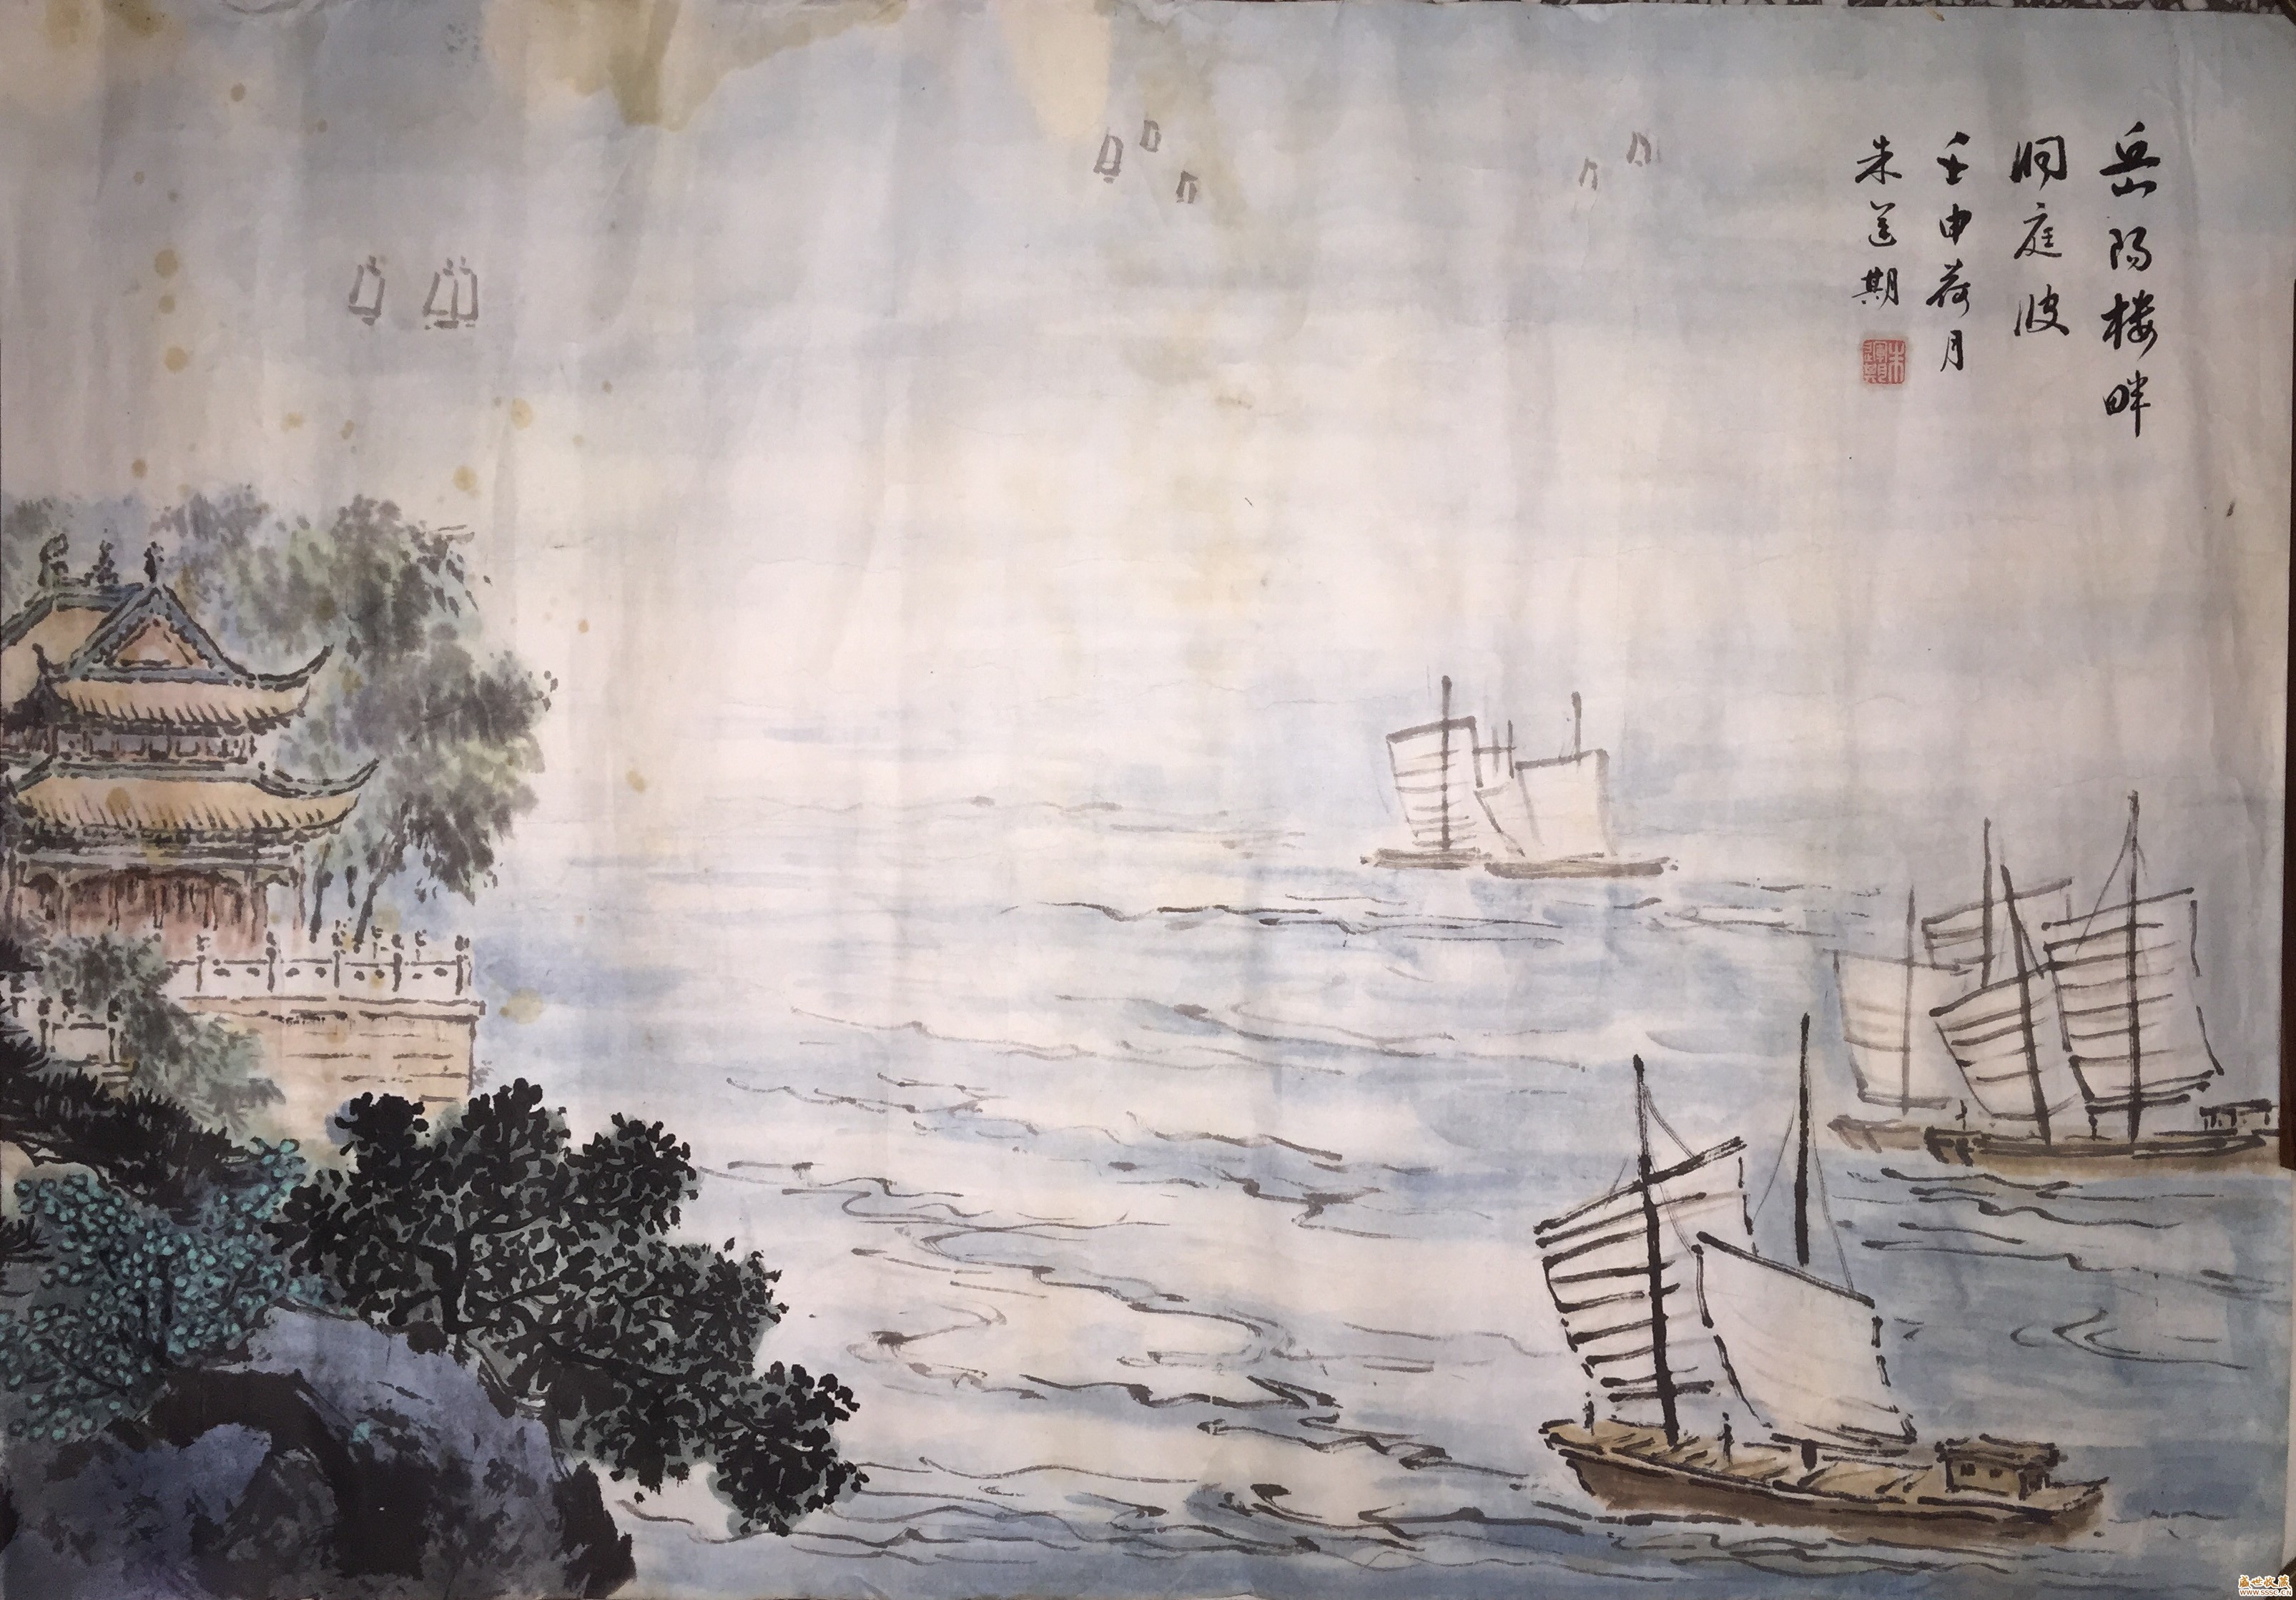 岳陽楼畔
洞庭波
壬申荷月
朱 期
盛世收藏
WWW.SSSC.CN